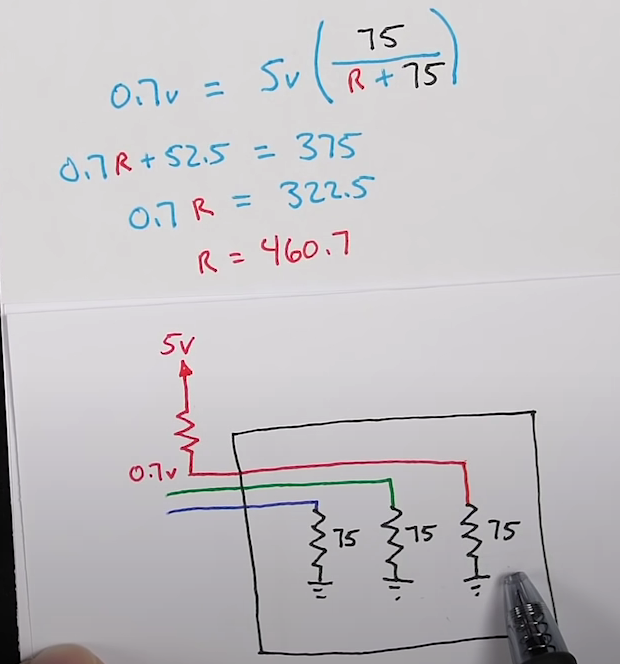 0.7v = 5v (75 / R + 75)
0.7R + 52.5 = 375
0.7 R = 322.5
R = 460.7
5V
0.7v
75 75 75